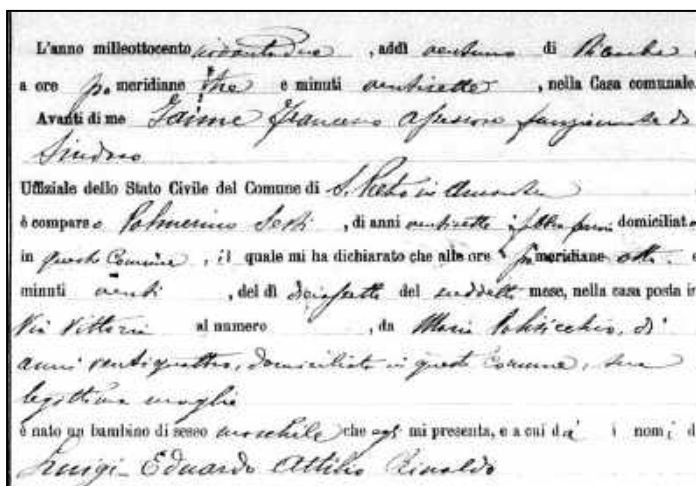 L'anno milleottocento ottantadue, addì ventuno di Dicembre
a ore po meridiane tre e minuti ventisette, nella Casa comunale.
Avanti di me Jaime Francesco assessore funzionante da
Sindaco
Uffiziale dello Stato Civile del Comune di S. Pietro in Amantea
è comparso Palmerino Sesti, di anni ventisette domiciliato
in questo Comune, il quale mi ha dichiarato che alle ore pomeridiane otto e
minuti venti, del dì diciassette del suddetto mese, nella casa posta in
Via Vittoria al numero , da Maria Policicchio, di
anni ventiquattro, domiciliata in questo Comune, sua
legittima moglie
è nato un bambino di sesso maschile che egli mi presenta, e a cui dà i nomi d
Luigi- Eduardo Attilio Rinaldo